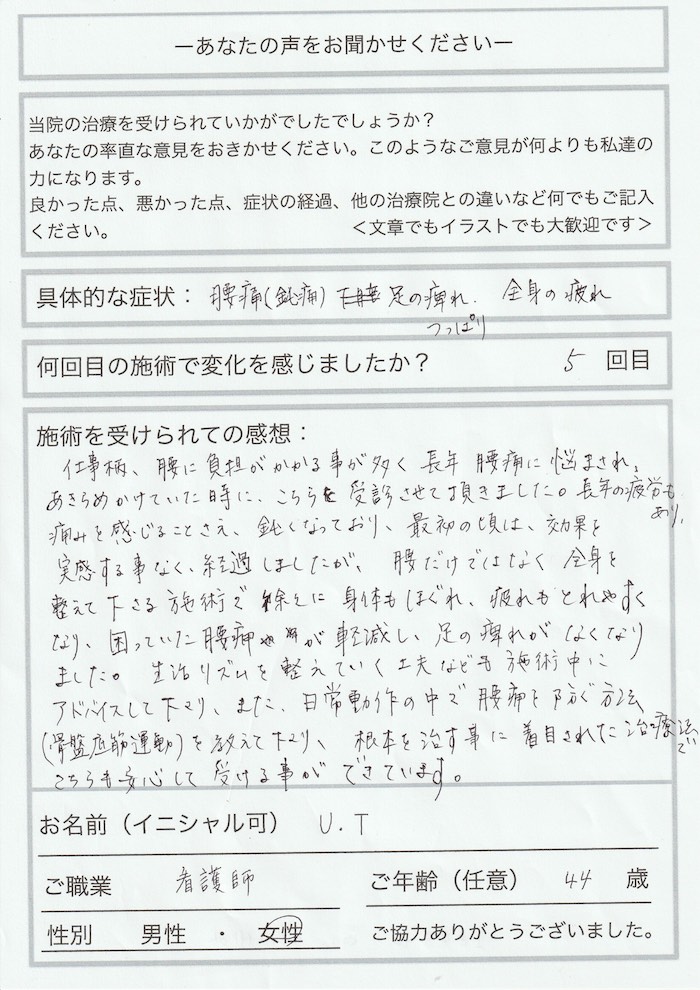 ーあなたの声をお聞かせくださいー
当院の治療を受けられていかがでしたでしょうか？
あなたの率直な意見をおきかせください。このようなご意見が何よりも私達の
力になります。
良かった点、悪かった点、症状の経過、他の治療院との違いなど何でもご記入
ください。　＜文章でもイラストでも大歓迎です＞
具体的な症状：腰痛(鈍痛) 足の痺れ. 全身の疲れ
つっぱり
何回目の施術で変化を感じましたか？ 5 回目
施術を受けられての感想：
仕事柄、腰に負担がかかる事が多く長年腰痛に悩まされ、
あきらめかけていた時に、こちらを受診させて頂きました。長年の疲労も
あり、
痛みを感じることさえ、鈍くなっており、最初の頃は、効果を
実感する事なく、経過しましたが、腰だけではなく全身を
整えて下さる施術で徐々に身体もほぐれ、疲れもとれやすく
なり、困っていた腰痛が軽減し、足の痺れがなくなり
ました。生活リズムを整えていく工夫なども施術中に
アドバイスして下さり、また、日常動作の中で腰痛を防ぐ方法
(骨盤底筋運動)を教えて下さり、根本を治す事に着目された治療法で
こちらも安心して受ける事ができています。
お名前（イニシャル可） U.T
ご職業 看護師 ご年齢（任意） 44 歳
性別 男性 ・ 女性 ご協力ありがとうございました。